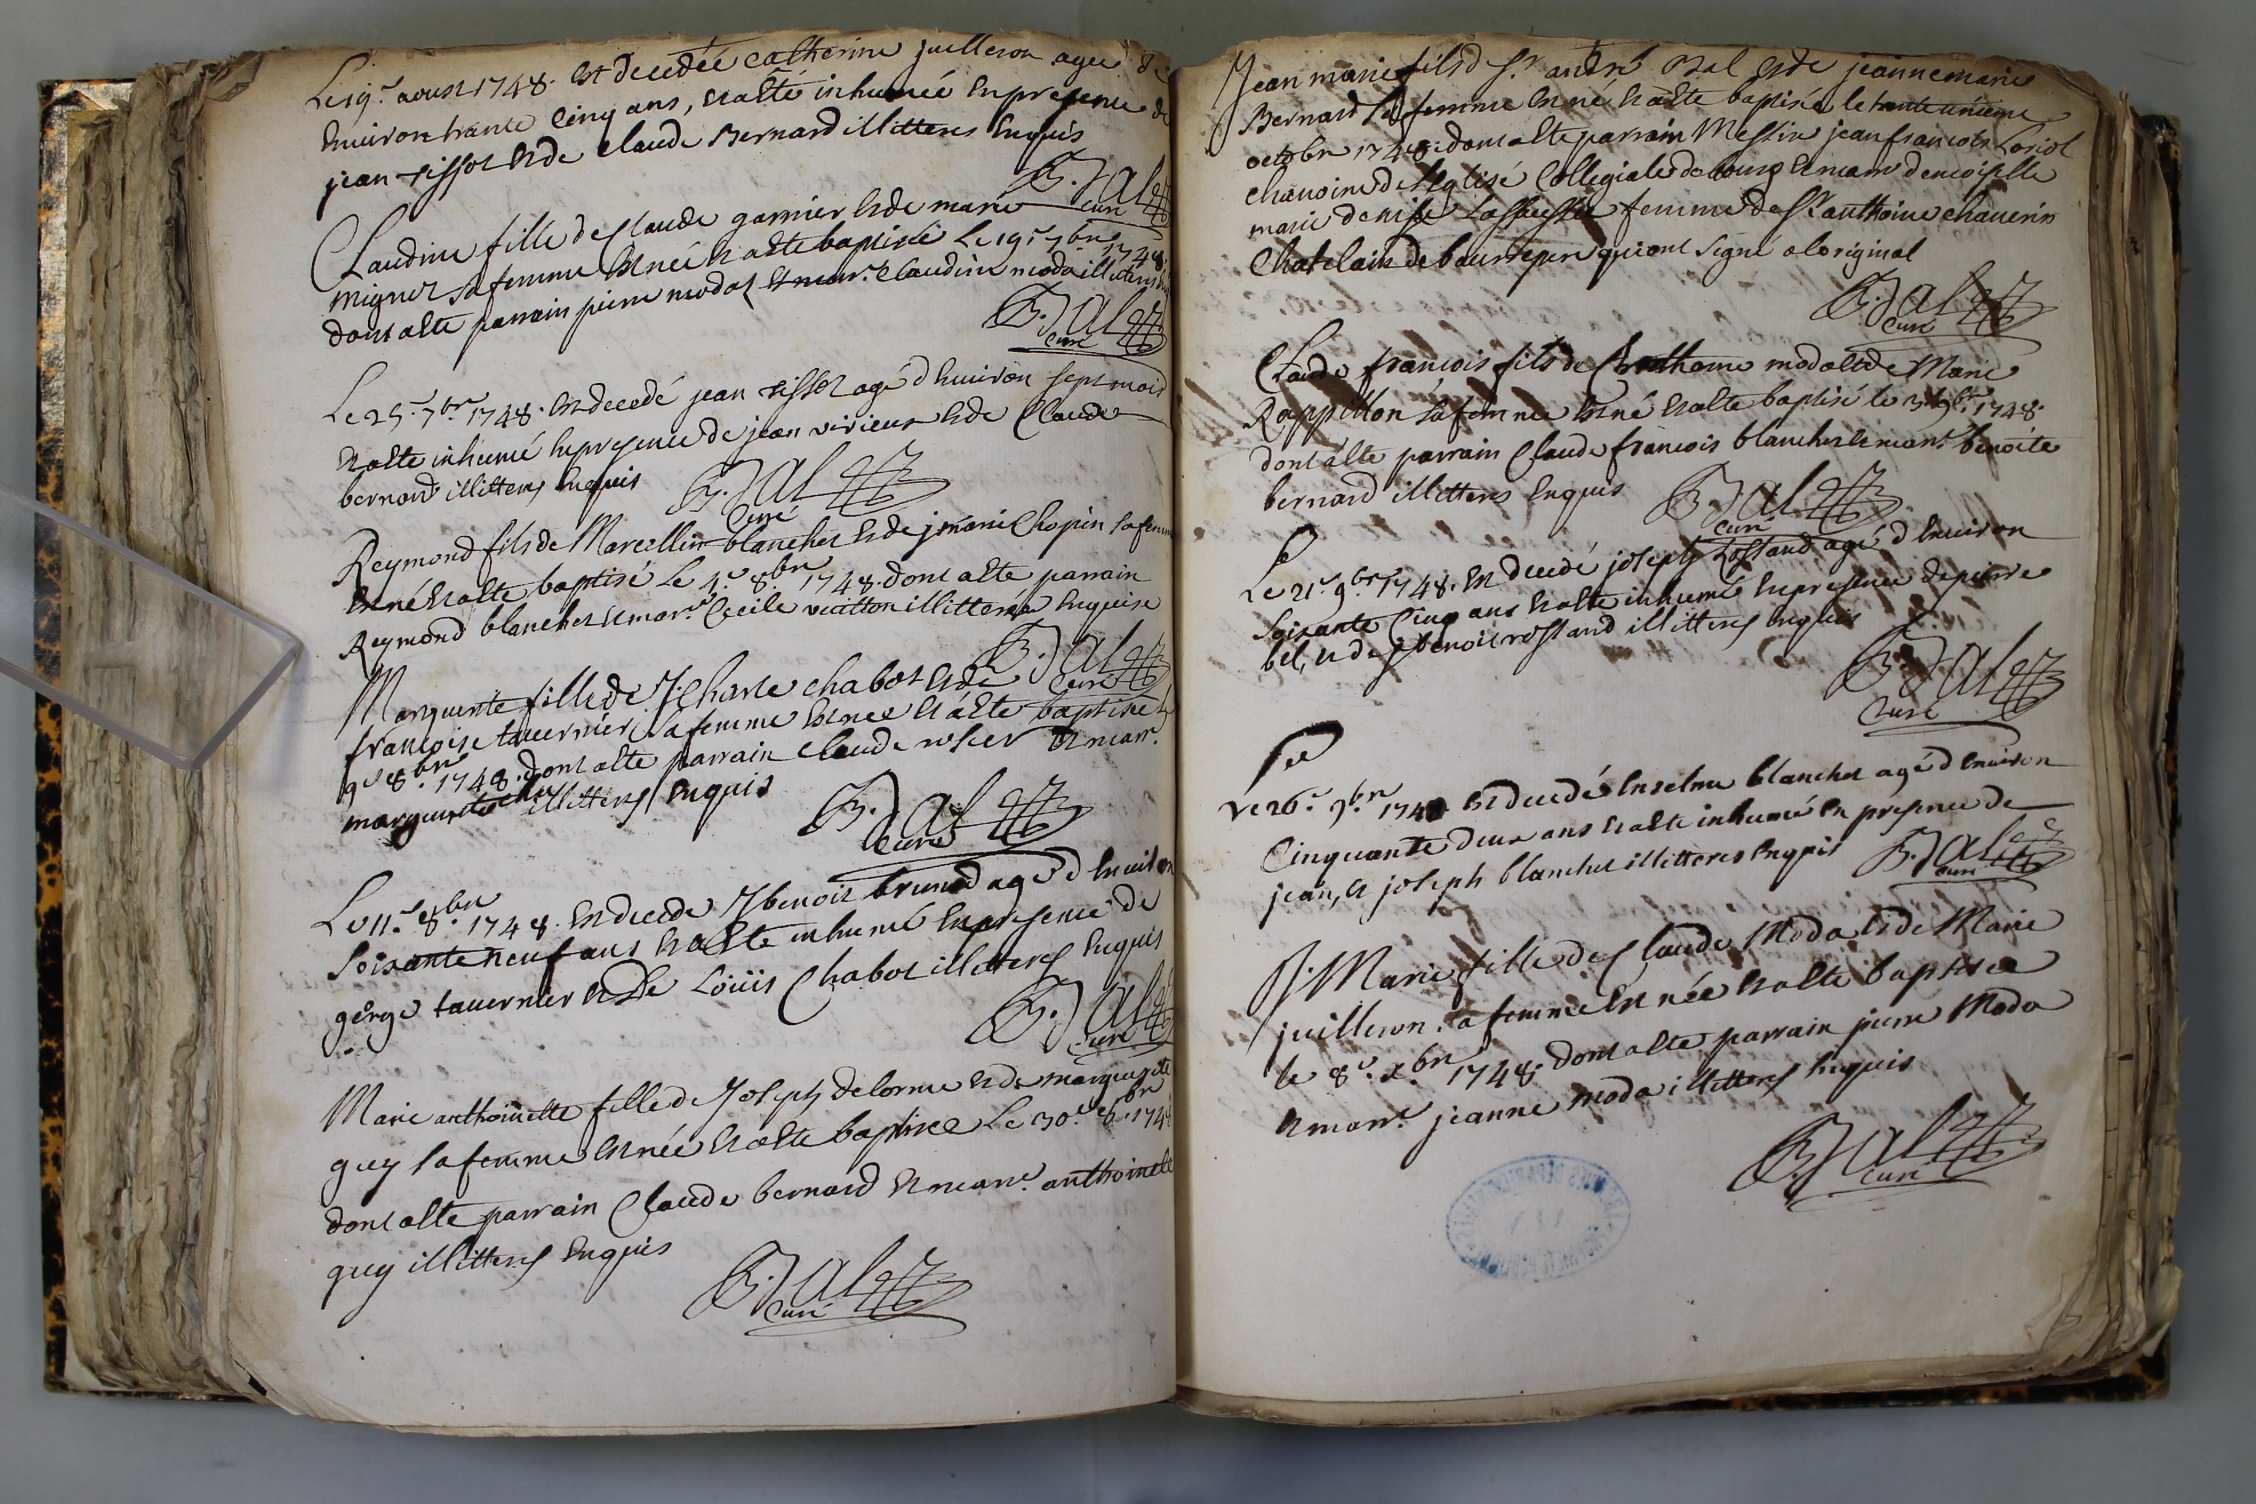 Le 19.e aoust 1748. Est decedée catherine juilleron agee de
Environ trante Cinq ans, Et a esté inhumée En presence de
jean tissot Et de Claude Bernard illitterés Enquis
B. Bal
curé
Claudine fille de Claude garnier Et de marie
mignot sa femme Est née Et a esté baptisée Le 19.e 7.bre 1748.
dont a esté parrain pierre modas Et mar.e Claudine moda illiterés
B. Bal
curé
Le 25.e 7.bre 1748. Est decedé jean tissot agé d'Environ sept mois
Et a esté inhumé En presence de jean virieux Et de Claude
bernard illitterés Enquis
B. Bal
Curé
Reymond fils de Marcellin blanchet Et de j marie Chopin sa femme
Est né Et a esté baptisé Le 4.e 8.bre 1748. dont a esté parrain
Reymond blanchet Et mar.e Cecile illitterés Enquis
B. Bal
Curé
Marguerite fille de J Charle chabot Et de
françoise tavernier sa femme Est nee Et a esté baptisée le
9.e 8.bre 1748. dont a esté parrain Claude Et marr.e
marguerite illitterés Enquis
B. Bal
Curé
Le 11.e 8.bre 1748. Est decedé J benoit brunod agé d'Environ
soixante neuf ans Et a esté inhumé En presence de
george tavernier Et de Loüis Chabot illitterés Enquis
B. Bal
Curé
Marie anthoinette fille de Joseph delorme Et de marguerite
guy sa femme Est née Et a esté baptisee Le 30.e 8.bre 1748
dont a esté parrain Claude bernard Et marr.e anthoinette
guy illitterés Enquis
B. Bal
Curé
Jean marie fils d S.r andré Bal Et de jeanne marie
Bernard sa femme Est né Et a esté baptisé le trante unieme
octobre 1748. dont a esté parrain Messire jean francois Loriol
chanoine de l'Eglise Collegiale de bourg Et marr.e demoiselle
marie denise femme de S.r anthoine chanerin
Chatelain de beaurepere qui ont signé a l original
B. Bal
Curé
Claude francois fils de Anthoine modas Et de Marie
Rappillon sa femme Est né Et a esté baptisé le 9.bre 1748.
dont a esté parrain Claude francois blanchet Et marr.e benoite
bernard illitterés Enquis
B. Bal
curé
Le 21.e 9.bre 1748. Est decedé joseph Rostand agé d'Environ
soixante Cinq ans Et a esté inhumé En presence de pierre
bel, Et de benoit rostand illitterés Enquis
B. Bal
Curé
Le 26.e 9.bre 1748 Est decedé Enselme blanchet agé d'Environ
Cinquante deux ans Et a esté inhumé En presence de
jean, Et joseph blanchet illitterés Enquis
B. Bal
curé
J. Marie fille de Claude Moda Et de Marie
juilleron sa femme Est née Et a esté baptisee
le 8.e x.bre 1748. dont a esté parrain pierre Moda
Et marr.e jeanne moda illitterés Enquis
B. Bal
Curé